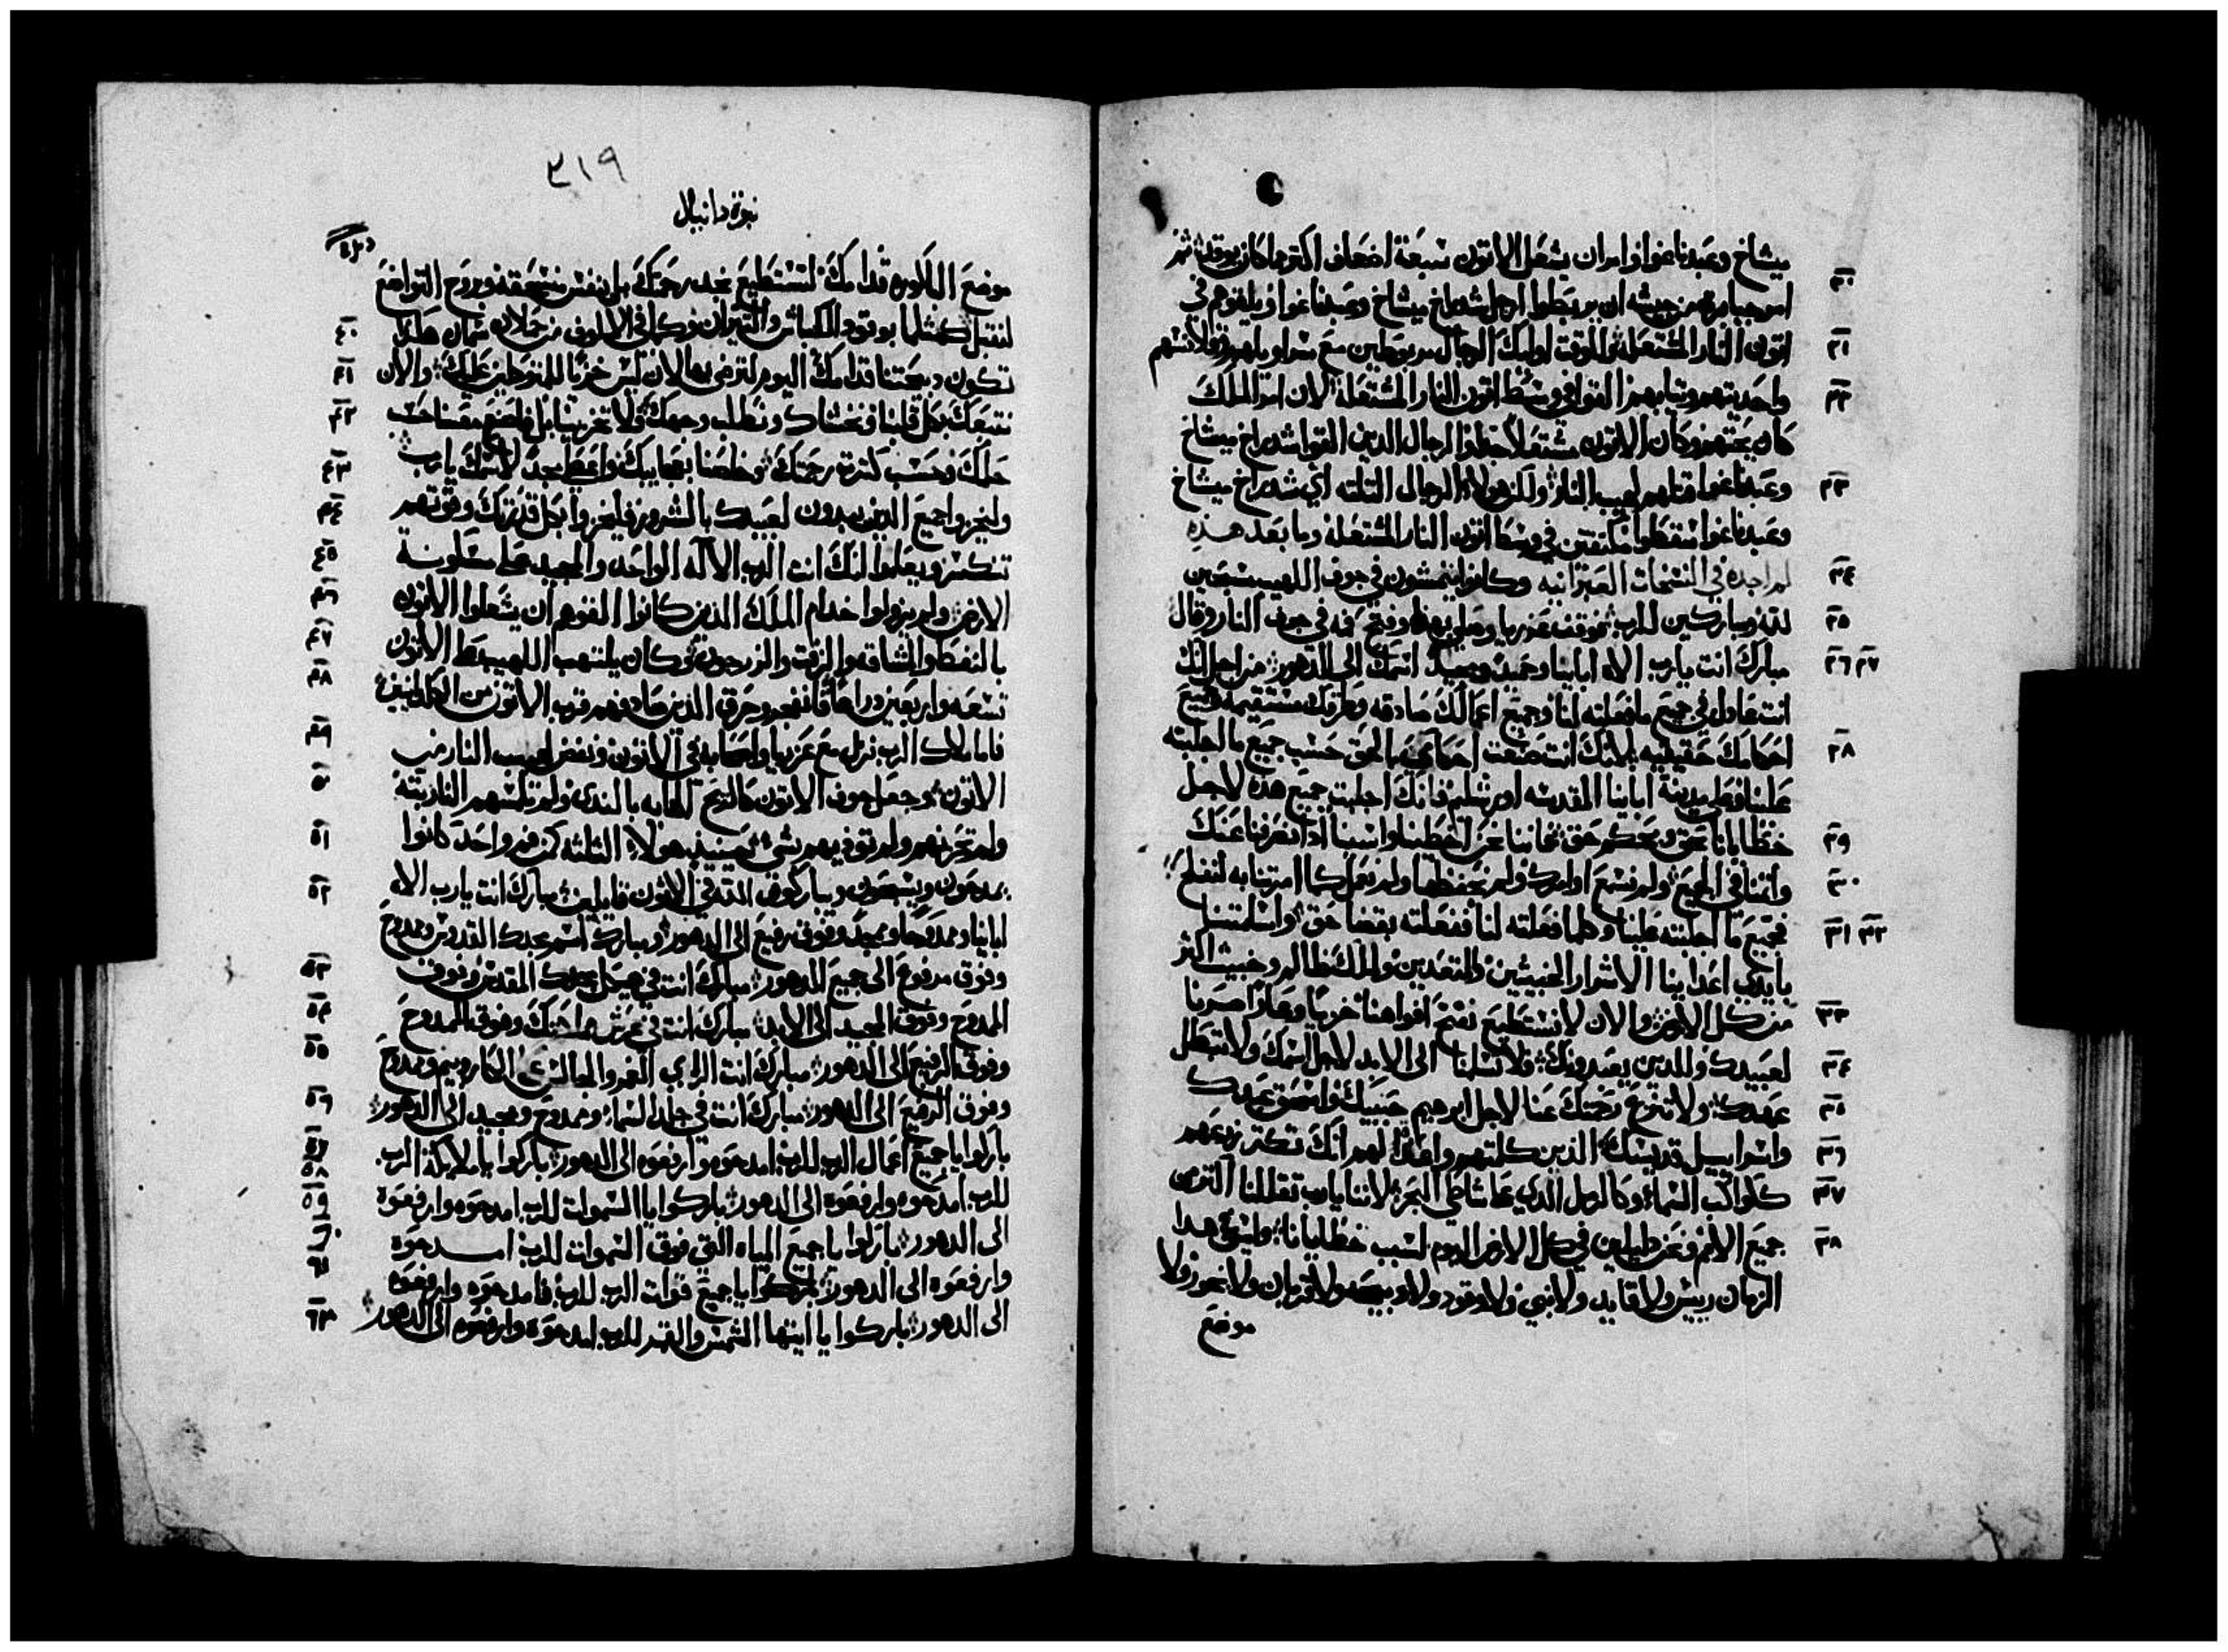 ميشاخ وعبدناغوا وامر ان يشعل الاتون سبعة اضعاف اكتر ما كان يوقد ثم
٢٠ امر جبابرة من جيشه ان يربطوا ارجل شدراخ ميشاخ وعبدناغوا ويلقوهم في
٢١ اتون النار المشتعله وللوقت اوليك الرجال مربوطين مع سراويلهم وقلانسهم
٢٢ واحديتهم وتيابهم القوا في وسط اتون النار المشتعله لان امر الملك
كان يحتهم وكان الاتون مشتعلا جدا الرجال الدين القوا شدراخ ميشاخ
٢٣ وعبدناغوا قتلهم لهيب النار ولكن هولاء الرجال التلته اي شدراخ ميشاخ
وعبدناغوا سقطوا مكتفين في وسط اتون النار المشتعله وما بعد هذه
٢٤ لم اجده في النسخات العبرانيه وكانوا يتمشون في جوف اللهيب مسبحين
٢٥ لله ومباركين للرب ثم وقف عزريا وصلي هكذا وفتح فمه في جوف النار وقال
٢٦ ٢٧ مبارك انت يارب الاه ابآينا وحميد ومجيد اسمك الي الدهور من اجل انك
انت عادل في جميع ما فعلته لنا وجميع اعمالك صادقه وطرقك مستقيمه وجميع
٢٨ احكامك حقيقيه لانك انت صنعت احكام حق بالحق حسب جميع ما اجلبته
علينا وعلي مدينة ابآينا المقدسه اورشليم فانك اجلبت جميع هذه لاجل
٢٩ خطايانا بحق وبحكم حق لاننا نحن اخطينا واسينا اد انصرفنا عنك
٣٠ واتمنا في الجميع ولم نسمع اوامرك ولم نحفظها ولم نعمل كما امرتنا به لنفلح
٣١ ٣٢ فجميع ما اجلبته علينا وكلما فعلته لنا ففعلته بقضا حق واسلمتنا
بايدي اعداينا الاشرار الخبيتين والمتعديين والملك ظالم وخبيث اكتر
٣٣ من كل الارض والان لا نستطيع نفتح افواهنا خزيا وعارا صرنا
٣٤ لعبيدك وللدين يعبدونك فلا تسلمنا الي الابد لاجل اسمك ولا تبطل
٣٥ عهدك ولا تنزع رحمتك عنا لاجل ابرهيم حبيبك واسحق عبدك
٣٦ واسراييل قديسك الذين كلمتهم واعدا لهم انك تكتر زرعهم
٣٧ كلواكب السماء وكالرمل الدي علي شاطي البحر لاننا يارب تقللنا اكتر من
٣٨ جميع الامم ونحن دليلين في كل الارض اليوم لسبب خطايانا وليس في هدا
الزمان رييس ولا قايد ولا نبي ولا وقود ولا دبيحه ولا قربان ولا بخور ولا
موضع
٣١٩
نبوة دانيال
موضع الباكوره قدامك لنستطيع نجد رحمتك بل بنفس منسحقه وبروح التواضع
٤٠ لنتقبل كمثلما بوقود الكباش والتيران وكما في الالوف من حملان سمان هكذا
٤١ تكون دبيحتنا قدامك اليوم لترضي بها لان ليس خزيا للمتوكلين عليك والان
٤٢ نتبعك بكل قلبنا ونخشاك ونطلب وجهك ولا تخزينا بل فاصنع معنا حسب
٤٣ حلمك وحسب كثرة رحمتك وخلصنا بعجايبك واعط مجدا لاسمك يارب
٤٤ وليخزوا جميع الدين يبدون لعبيدك بالشرور فليخزوا بكل قدرتك وقوتهم
٤٥ تنكسر ويعلموا انك انت الرب الآله الواحد والمجيد علي مسكونة
٤٦ الارض ولم يزولوا خدام الملك الدين كانوا القوهم ان يشعلوا الاتون
٤٧ بالنفط والمشاقه والزفت والزرجون وكان يلتهب اللهيب علي الاتون
٤٨ تسعه واربعين دراعا فانفجر وحرق الدين صادفهم قرب الاتون من الكلدانيين
٤٩ فاما ملاك الرب نزل مع عزريا واصحابه في الاتون ونفض لهيب النار من
٥٠ الاتون وجعل جوف الاتون كالريح الهابه بالندي ولم تلمسهم النار بتة
٥١ ولم تحزنهم ولم توديهم بشي حينيذ هولاء التلته كمن فم واحد كانوا
٥٢ يمدحون ويسبحون ويباركون الله في الاتون قايلين مبارك انت يارب الاه
ابآينا وممدوحا وممجد وفوق رفيع الي الدهور ومبارك اسم مجدك القدوس وممدوح
٥٣ وفوق مرفوع الي جميع الدهور مبارك انت في هيكل مجدك المقدس وفوق
٥٤ الممدوح وفوق المجيد الي الابد مبارك انت في عرش مملكتك وفوق الممدوح
٥٥ وفوق الرفيع الي الدهور مبارك انت الراي الغمر والجالس علي الكاروبيم وممدوح
٥٦ وفوق الرفيع الي الدهور مبارك انت في جلد السماء وممدوح ومجيد الي الدهور
٥٧ ٥٨ باركوا يا جميع اعمال الرب للرب امدحوه وارفعوه الي الدهور باركوا يا ملايكة الرب
٥٩ للرب امدحوه وارفعوه الي الدهور باركوا يا السموات للرب امدحوه وارفعوه
٦٠ الي الدهور باركوا يا جميع المياه التي فوق السموات للرب امدحوه
٦١ وارفعوه الي الدهور باركوا يا جميع قوات الرب للرب فامدحوه وارفعوه
٦٢ الي الدهور باركوا يا ايتها الشمس والقمر للرب امدحوه وارفعوه الي الدهور